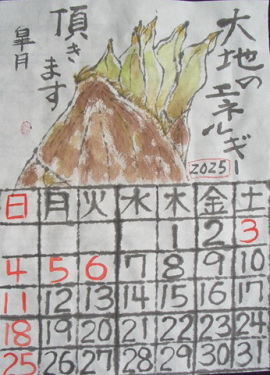 大地の
エネルギー
頂きます
皐月
2025
日 月 火 水 木 金 土
1 2 3
4 5 6 7 8 9 10
11 12 13 14 15 16 17
18 19 20 21 22 23 24
25 26 27 28 29 30 31